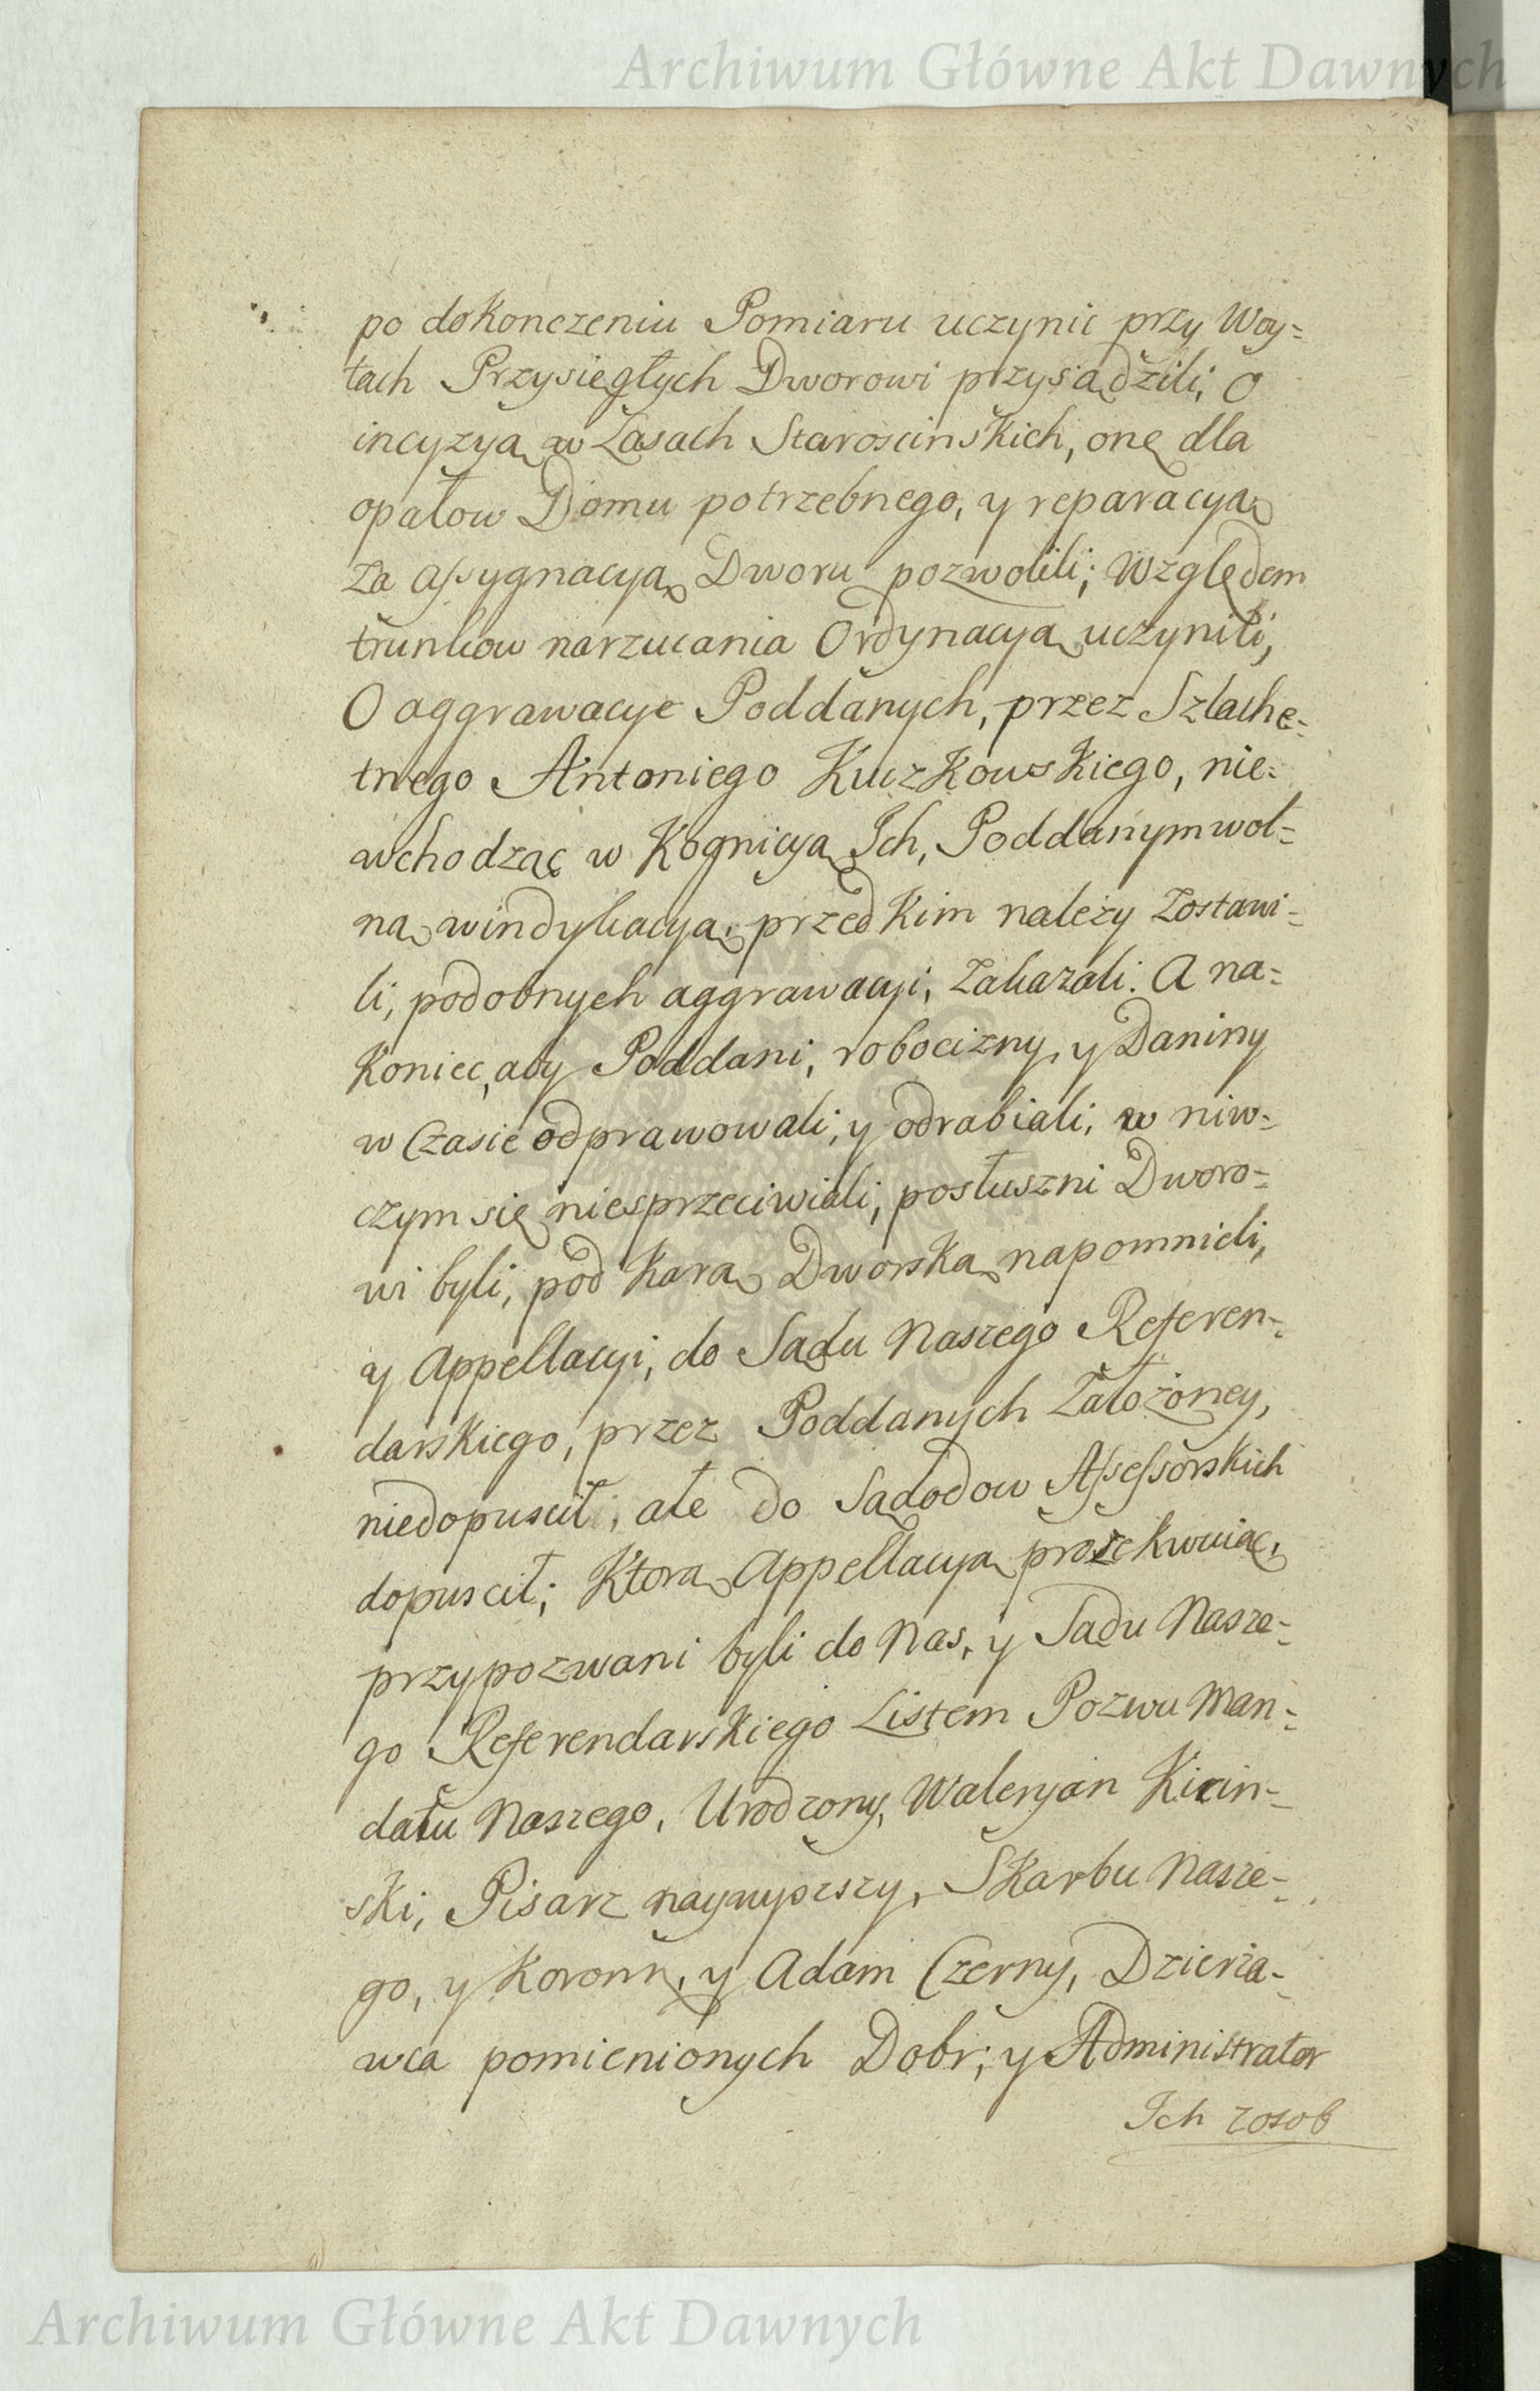 Archiwum Główne Akt Dawnych
po dokonczeniu Pomiaru uczynic przy Woy=
tach Przysięgłych Dworowi przysądzili; O
incyzyą w Lasach Staroscinskich, onę dla
opałow Domu potrzebnego, y reparacyą
za assygnacyą Dworu pozwolili; Względem
trunkow narzucania Ordynacyą uczynili,
O aggrawacye Poddanych, przez Szlache=
tnego Antoniego Kuczkowskiego, nie=
wchodząc w Kognicyą Ich, Poddanym wol=
ną windykacyą, przed kim należy zostawi=
li, podobnych aggrawacyi, zakazali. A na=
koniec, aby Poddani, robocizny, y Daniny
w Czasie odprawowali, y odrabiali, w niw=
czym się niesprzeciwiali, posłuszni Dworo=
wi byli, pod karą Dworską napomnieli,
y Appellacyi, do Sądu Naszego Referen=
darskiego, przez Poddanych Założoney,
niedopuscił, ale do Sądodow Assessorskich
dopuscił; Ktorą Appellacyą prosekwuiąc,
przypozwani byli do Nas, y Sądu Nasze=
go Referendarskiego Listem Pozwu Man=
datu Naszego, Urodzony, Waleryan Kicin=
ski, Pisarz naywyższy, Skarbu Nasze=
go, y Koronn, y Adam Czerny, Dzierża=
wca pomienionych Dobr, y Administrator
Ich zosob
Archiwum Główne Akt Dawnych